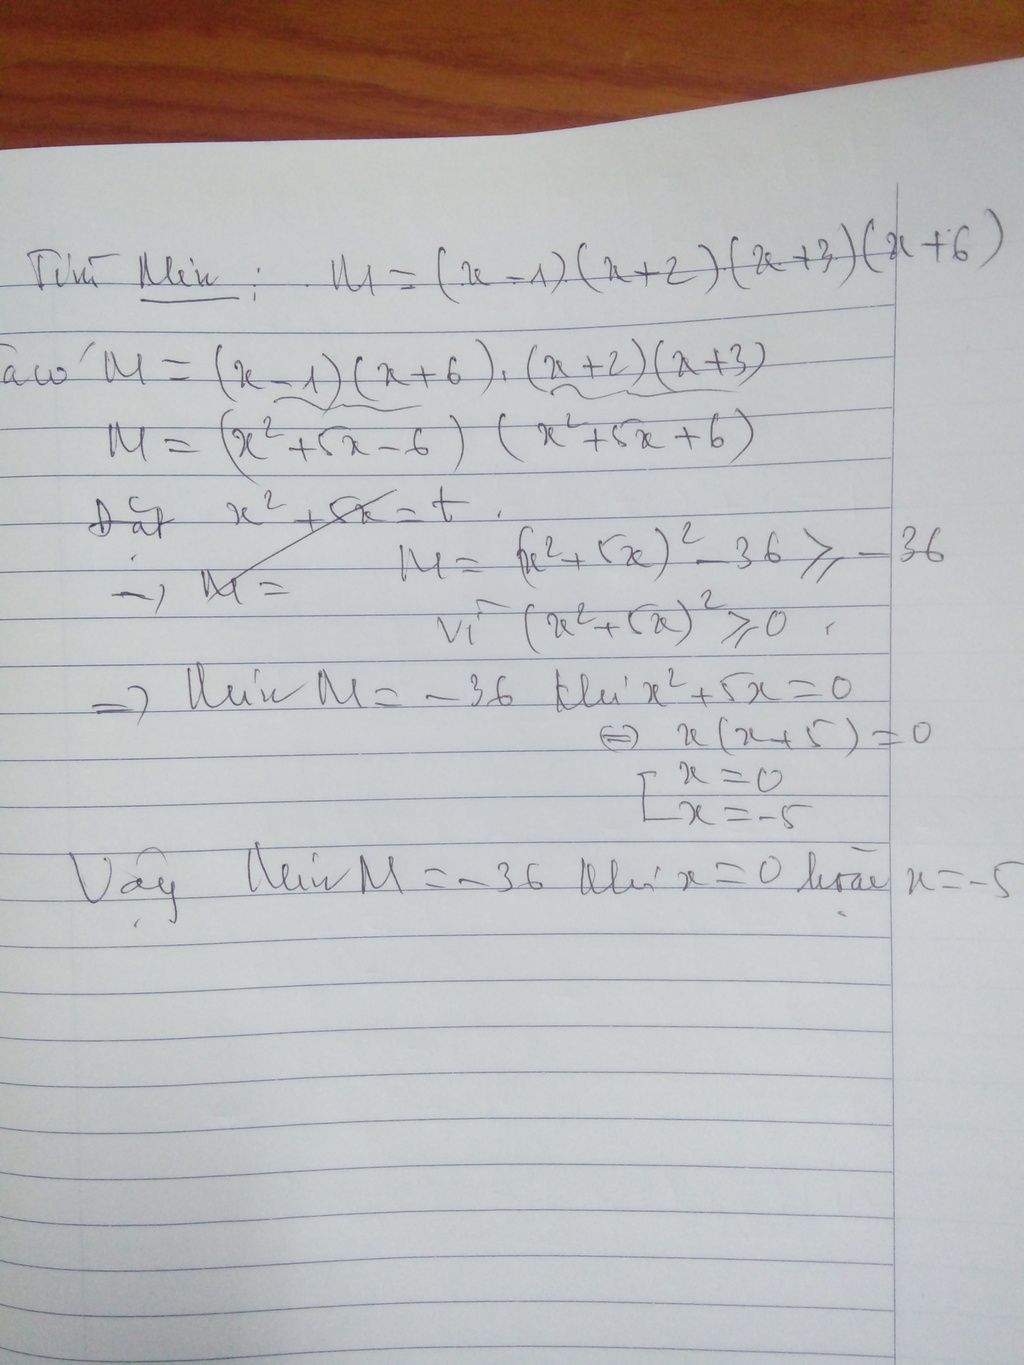 Tìm Min : M = (x-1)(x+2)(x+3)(x+6)
Ta có M = (x-1)(x+6).(x+2)(x+3)
M = (x²+5x-6) (x²+5x+6)
Đặt x²+5x=t.
→ M =
M = (x²+5x)²-36 ≥ -36
vì (x²+5x)² ≥ 0.
=> Min M = -36 khi x²+5x=0
⇔ x(x+5)=0
[ x=0
x=-5
Vậy Min M = -36 khi x=0 hoặc x=-5